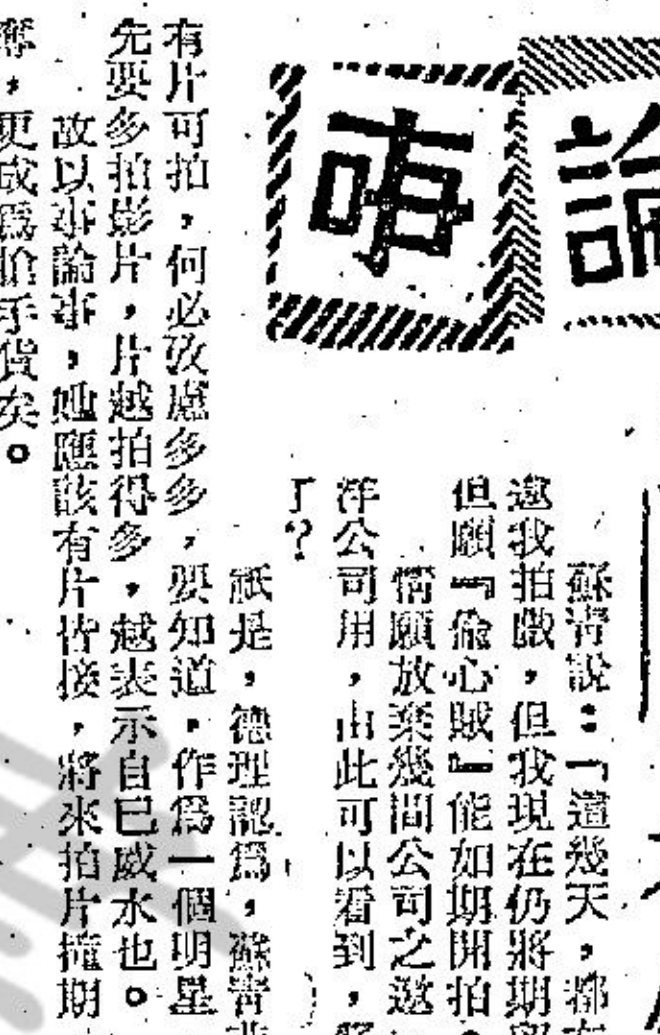 論事
蘇青說：「這幾天，都
邀我拍戲，但我現在仍將期
但願『偷心賊』能如期開拍
情願放棄幾間公司之邀
洋公司用，由此可以看到，
了？
祇是，德理認爲，蘇青
有片可拍，何必攷慮多多，要知道，作爲一個明星
先要多拍影片，片越拍得多，越表示自已威水也。
故以事論事，她應該有片皆接，將來拍片撞期
奪，更成爲搶手貨矣。